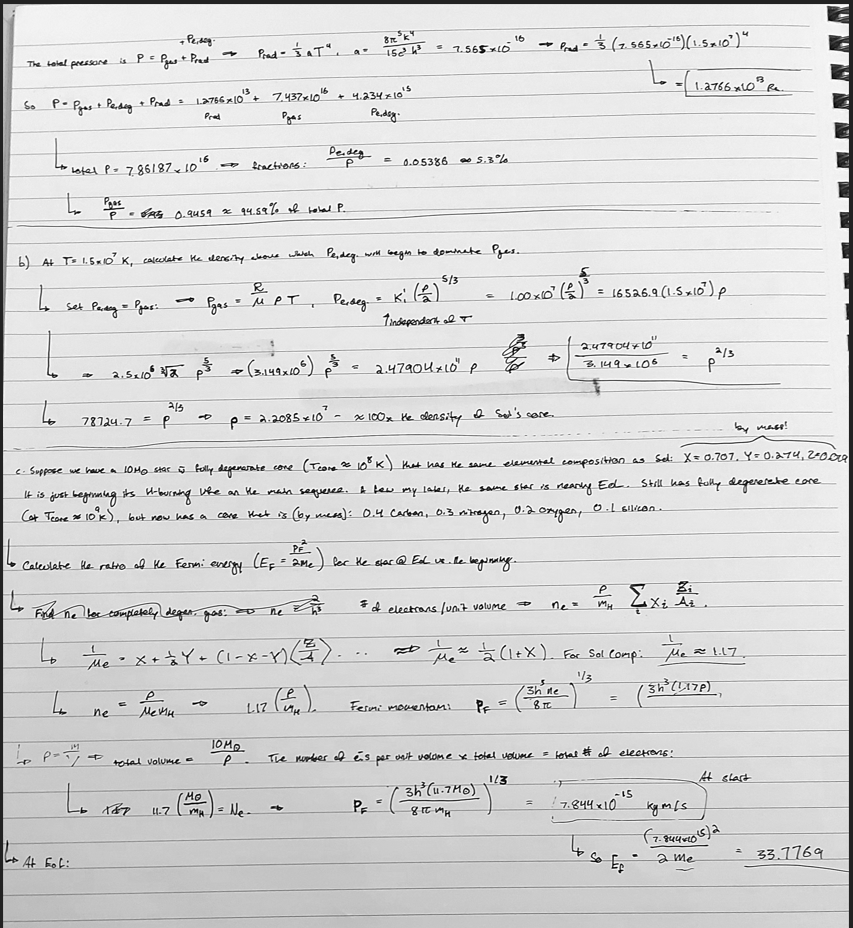 + Pe,deg.
The total pressure is P = Pgas + Prad → Prad = 1/3 aT⁴, a = 8π⁵k⁴/15c³h³ = 7.565×10⁻¹⁶ → Prad = 1/3 (7.565×10⁻¹⁶)(1.5×10⁷)⁴
= 1.2766×10¹³ Pa.
So P = Pgas + Pe,deg + Prad = 1.2766×10¹³ + 7.437×10¹⁶ + 4.234×10¹⁵
Prad Pgas Pe,deg.
total P = 7.86187×10¹⁶ → fractions: Pe,deg/P = 0.05386 ≈ 5.3%
Pgas/P = 0.9459 ≈ 94.59% of total P.
b) At T = 1.5×10⁷ K, calculate the density above which Pe,deg. will begin to dominate Pgas.
Set Pe,deg = Pgas: → Pgas = R/μ ρT, Pe,deg. = K₁' (ρ/2)^5/3 = 1.00×10⁷ (ρ/2)^5/3 = 16526.9(1.5×10⁷)ρ
↑independent of T
⇒ 2.5×10⁶ ∛2 ρ^5/3 → (3.149×10⁶) ρ^5/3 = 2.47904×10¹¹ ρ ⇒ 2.47904×10¹¹/3.149×10⁶ = ρ^2/3
78724.7 = ρ^2/3 → ρ = 2.2085×10⁷ - ≈100x the density of Sol's core.
by mass!
c. Suppose we have a 10M⊙ star w̄ fully degenerate core (Tcore ≈ 10⁸ K) that has the same elemental composition as Sol: X=0.707, Y=0.274, Z=0.019
It is just beginning its H-burning life on the main sequence. A few my later, the same star is nearly EoL. Still has fully degenerate core
(at Tcore ≈ 10⁹ K), but now has a core that is (by mass): 0.4 Carbon, 0.3 nitrogen, 0.2 oxygen, 0.1 silicon.
Calculate the ratio of the Fermi energy (EF = PF²/2me) for the star @ EoL vs. the beginning.
Find ne for completely degen. gas: → ne = 2/h³ # of electrons/unit volume → ne = ρ/mH Σi Xi Zi/Ai.
1/μe = X + 1/2 Y + (1-X-Y)(Z/A) ... ⇒ 1/μe ≈ 1/2 (1+X). For Sol comp: 1/μe ≈ 1.17.
ne = ρ/μemH → 1.17 (ρ/mH). Fermi momentum: PF = (3h³ne/8π)^1/3 = (3h³(1.17ρ)
ρ = M/V → total volume = 10M⊙/ρ. The number of e⁻s per unit volume × total volume = total # of electrons:
11.7 (M⊙/mH) = Ne. → PF = (3h³(11.7M⊙)/8πmH)^1/3 = 7.844×10⁻¹⁵ kg m/s At start
So Ef = (7.844×10¹⁵)²/2me = 33.7769
At EoL: